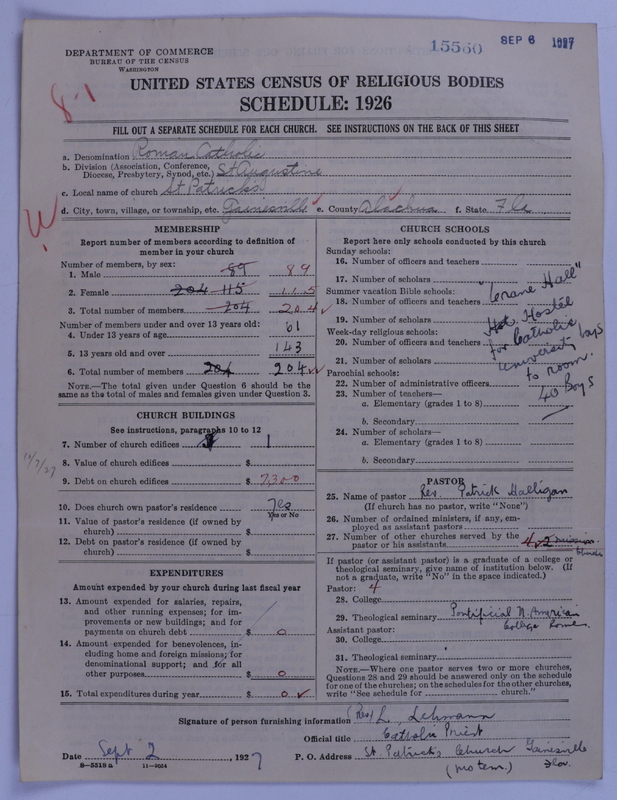 15560
SEP 6 1927
DEPARTMENT OF COMMERCE
BUREAU OF THE CENSUS
WASHINGTON
8-1
UNITED STATES CENSUS OF RELIGIOUS BODIES
SCHEDULE: 1926
FILL OUT A SEPARATE SCHEDULE FOR EACH CHURCH. SEE INSTRUCTIONS ON THE BACK OF THIS SHEET
a. Denomination Roman Catholic
b. Division (Association, Conference, Diocese, Presbytery, Synod, etc.) St Augustine
c. Local name of church St Patricks
d. City, town, village, or township, etc. Gainesville e. County Alachua f. State Fla
MEMBERSHIP
Report number of members according to definition of
member in your church
Number of members, by sex:
1. Male 89 89
2. Female 204 115 115
3. Total number of members 204 204
Number of members under and over 13 years old:
4. Under 13 years of age 61
5. 13 years old and over 143
6. Total number of members 204 204
NOTE.—The total given under Question 6 should be the
same as the total of males and females given under Question 3.
CHURCH BUILDINGS
See instructions, paragraphs 10 to 12
7. Number of church edifices 1
8. Value of church edifices $
9. Debt on church edifices $ 7300
10. Does church own pastor's residence Yes
Yes or No
11. Value of pastor's residence (if owned by
church) $
12. Debt on pastor's residence (if owned by
church) $
EXPENDITURES
Amount expended by your church during last fiscal year
13. Amount expended for salaries, repairs,
and other running expenses; for im-
provements or new buildings; and for
payments on church debt $ 0
14. Amount expended for benevolences, in-
cluding home and foreign missions; for
denominational support; and for all
other purposes $ 0
15. Total expenditures during year $ 0
CHURCH SCHOOLS
Report here only schools conducted by this church
Sunday schools:
16. Number of officers and teachers
17. Number of scholars
Summer vacation Bible schools:
18. Number of officers and teachers
19. Number of scholars
Week-day religious schools:
20. Number of officers and teachers
21. Number of scholars
Parochial schools:
22. Number of administrative officers
23. Number of teachers—
a. Elementary (grades 1 to 8)
b. Secondary
24. Number of scholars—
a. Elementary (grades 1 to 8)
b. Secondary
"Crane Hall"
Hostel
for Catholic
University boys
to room.
40 Boys
PASTOR
25. Name of pastor Rev. Patrick Halligan
(If church has no pastor, write "None")
26. Number of ordained ministers, if any, em-
ployed as assistant pastors
27. Number of other churches served by the
pastor or his assistants 2 mission
If pastor (or assistant pastor) is a graduate of a college or
theological seminary, give name of institution below. (If
not a graduate, write "No" in the space indicated.)
Pastor: 4
28. College
29. Theological seminary Pontifical N. American
College Rome.
Assistant pastor:
30. College
31. Theological seminary
NOTE.—Where one pastor serves two or more churches,
Questions 28 and 29 should be answered only on the schedule
for one of the churches; on the schedules for the other churches,
write "See schedule for church."
Signature of person furnishing information (Rev) L. Lehmann
Official title Catholic Priest
Date Sept 2, 1927 P. O. Address St. Patrick's Church Gainesville
(pro tem.) Flor.
8—5518a 11—9054